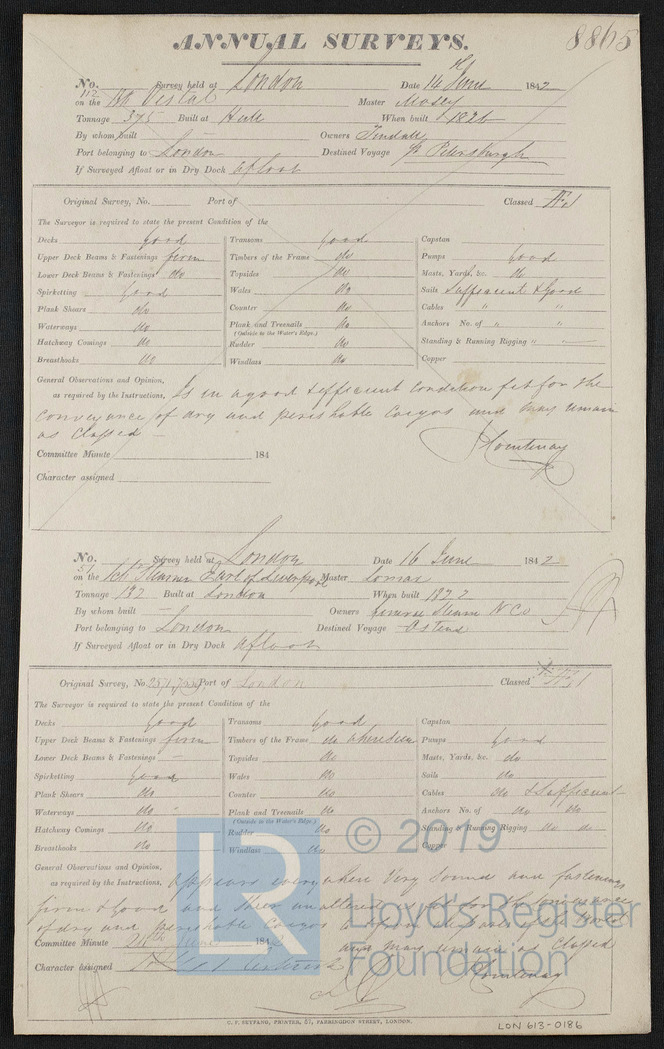 ANNUAL SURVEYS. 8865
No. 112 Survey held at London Date 14 June 1842
on the Bk Vestal Master Mosey
Tonnage 395 Built at Hull When built 1826
By whom built — Owners Tindall
Port belonging to London Destined Voyage Petersburgh
If Surveyed Afloat or in Dry Dock afloat
Original Survey, No. Port of Classed Æ1
The Surveyor is required to state the present Condition of the
Decks good Transoms good Capstan
Upper Deck Beams & Fastenings firm Timbers of the Frame do Pumps good
Lower Deck Beams & Fastenings do Topsides do Masts, Yards, &c. do
Spirketting good Wales do Sails Sufficient & Good
Plank Shears do Counter do Cables " "
Waterways do Plank and Treenails do Anchors No. of " "
(Outside to the Water's Edge.)
Hatchway Comings do Rudder do Standing & Running Rigging " —
Breasthooks do Windlass do Copper
General Observations and Opinion,
as required by the Instructions, Is in a good & efficient condition fit for the
conveyance of dry and perishable Cargos and may remain
as classed —
Courtenay
Committee Minute 184
Character assigned
No. 51 Survey held at London Date 16 June 1842
on the Steamer Earl of Liverpool Master Lomas
Tonnage 197 Built at London When built 1822
By whom built — Owners General Steam N Co
Port belonging to London Destined Voyage Ostend
If Surveyed Afloat or in Dry Dock afloat
Original Survey, No. Port of London Classed Æ1
The Surveyor is required to state the present Condition of the
Decks Good Transoms good Capstan
Upper Deck Beams & Fastenings firm Timbers of the Frame do where seen Pumps good
Lower Deck Beams & Fastenings — Topsides do Masts, Yards, &c. do
Spirketting good Wales do Sails do
Plank Shears do Counter do Cables do & Sufficient
Waterways do Plank and Treenails do Anchors No. of do do
(Outside to the Water's Edge.)
Hatchway Comings do Rudder do Standing & Running Rigging do do
Breasthooks do Windlass do Copper
General Observations and Opinion,
as required by the Instructions, appears everywhere Very Sound and fastenings
firm & good and then unaltered the conveyance
of dry and perishable Cargos
Committee Minute June 1842 and may remain as Classed
Character assigned Courtenay
C. F. SEYFANG, PRINTER, 57, FARRINGDON STREET, LONDON.
LON 613-0186
LR
© 2019
Lloyd's Register
Foundation